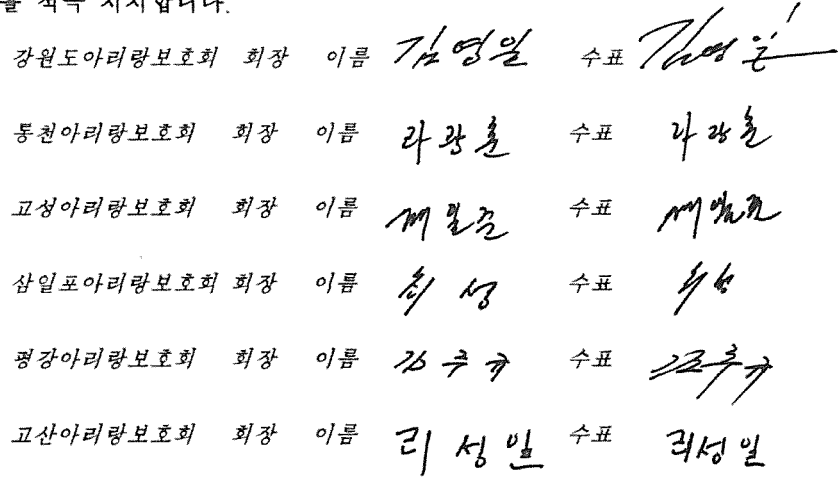 적극 지지합니다.
강원도아리랑보호회 회장 이름 김영일 수표 김영일
통천아리랑보호회 회장 이름 라광훈 수표 라광훈
고성아리랑보호회 회장 이름 수표
삼일포아리랑보호회 회장 이름 최성 수표 최성
평강아리랑보호회 회장 이름 수표
고산아리랑보호회 회장 이름 리성일 수표 리성일